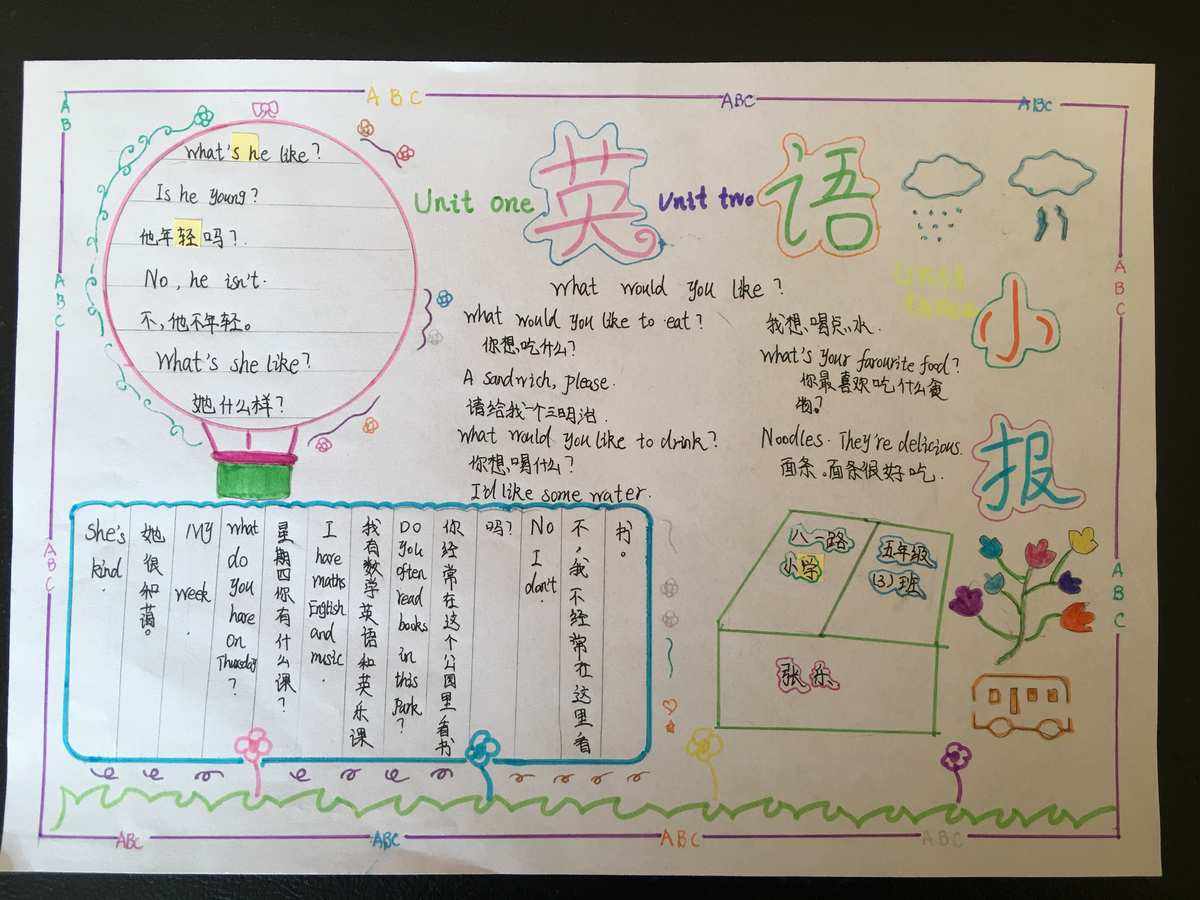 ABC
ABC
ABC
AB
ABC
ABC
ABC
ABC
What's he like?
Is he young?
他年轻吗?
No, he isn't.
不,他不年轻。
What's she like?
她什么样?
Unit one
英
Unit two
语
Unit
three
小
报
What would you like?
What would you like to eat?
你想吃什么?
A sandwich, please.
请给我一个三明治.
What would you like to drink?
你想喝什么?
I'd like some water.
我想喝点水.
What's your farourite food?
你最喜欢吃什么食
物?
Noodles. They're delicious.
面条。面条很好吃.
She's kind.
她很和蔼。
My week.
What do you hare on Thursday?
星期四你有什么课?
I hare maths English and music.
我有数学英语和英乐课
Do you often read books in this Park?
你经常在这个公园里看书
吗?
No I don't.
不,我不经常在这里看
书。
八一路
小学
五年级
(3)班
张乐
ABC
ABC
ABC
ABC